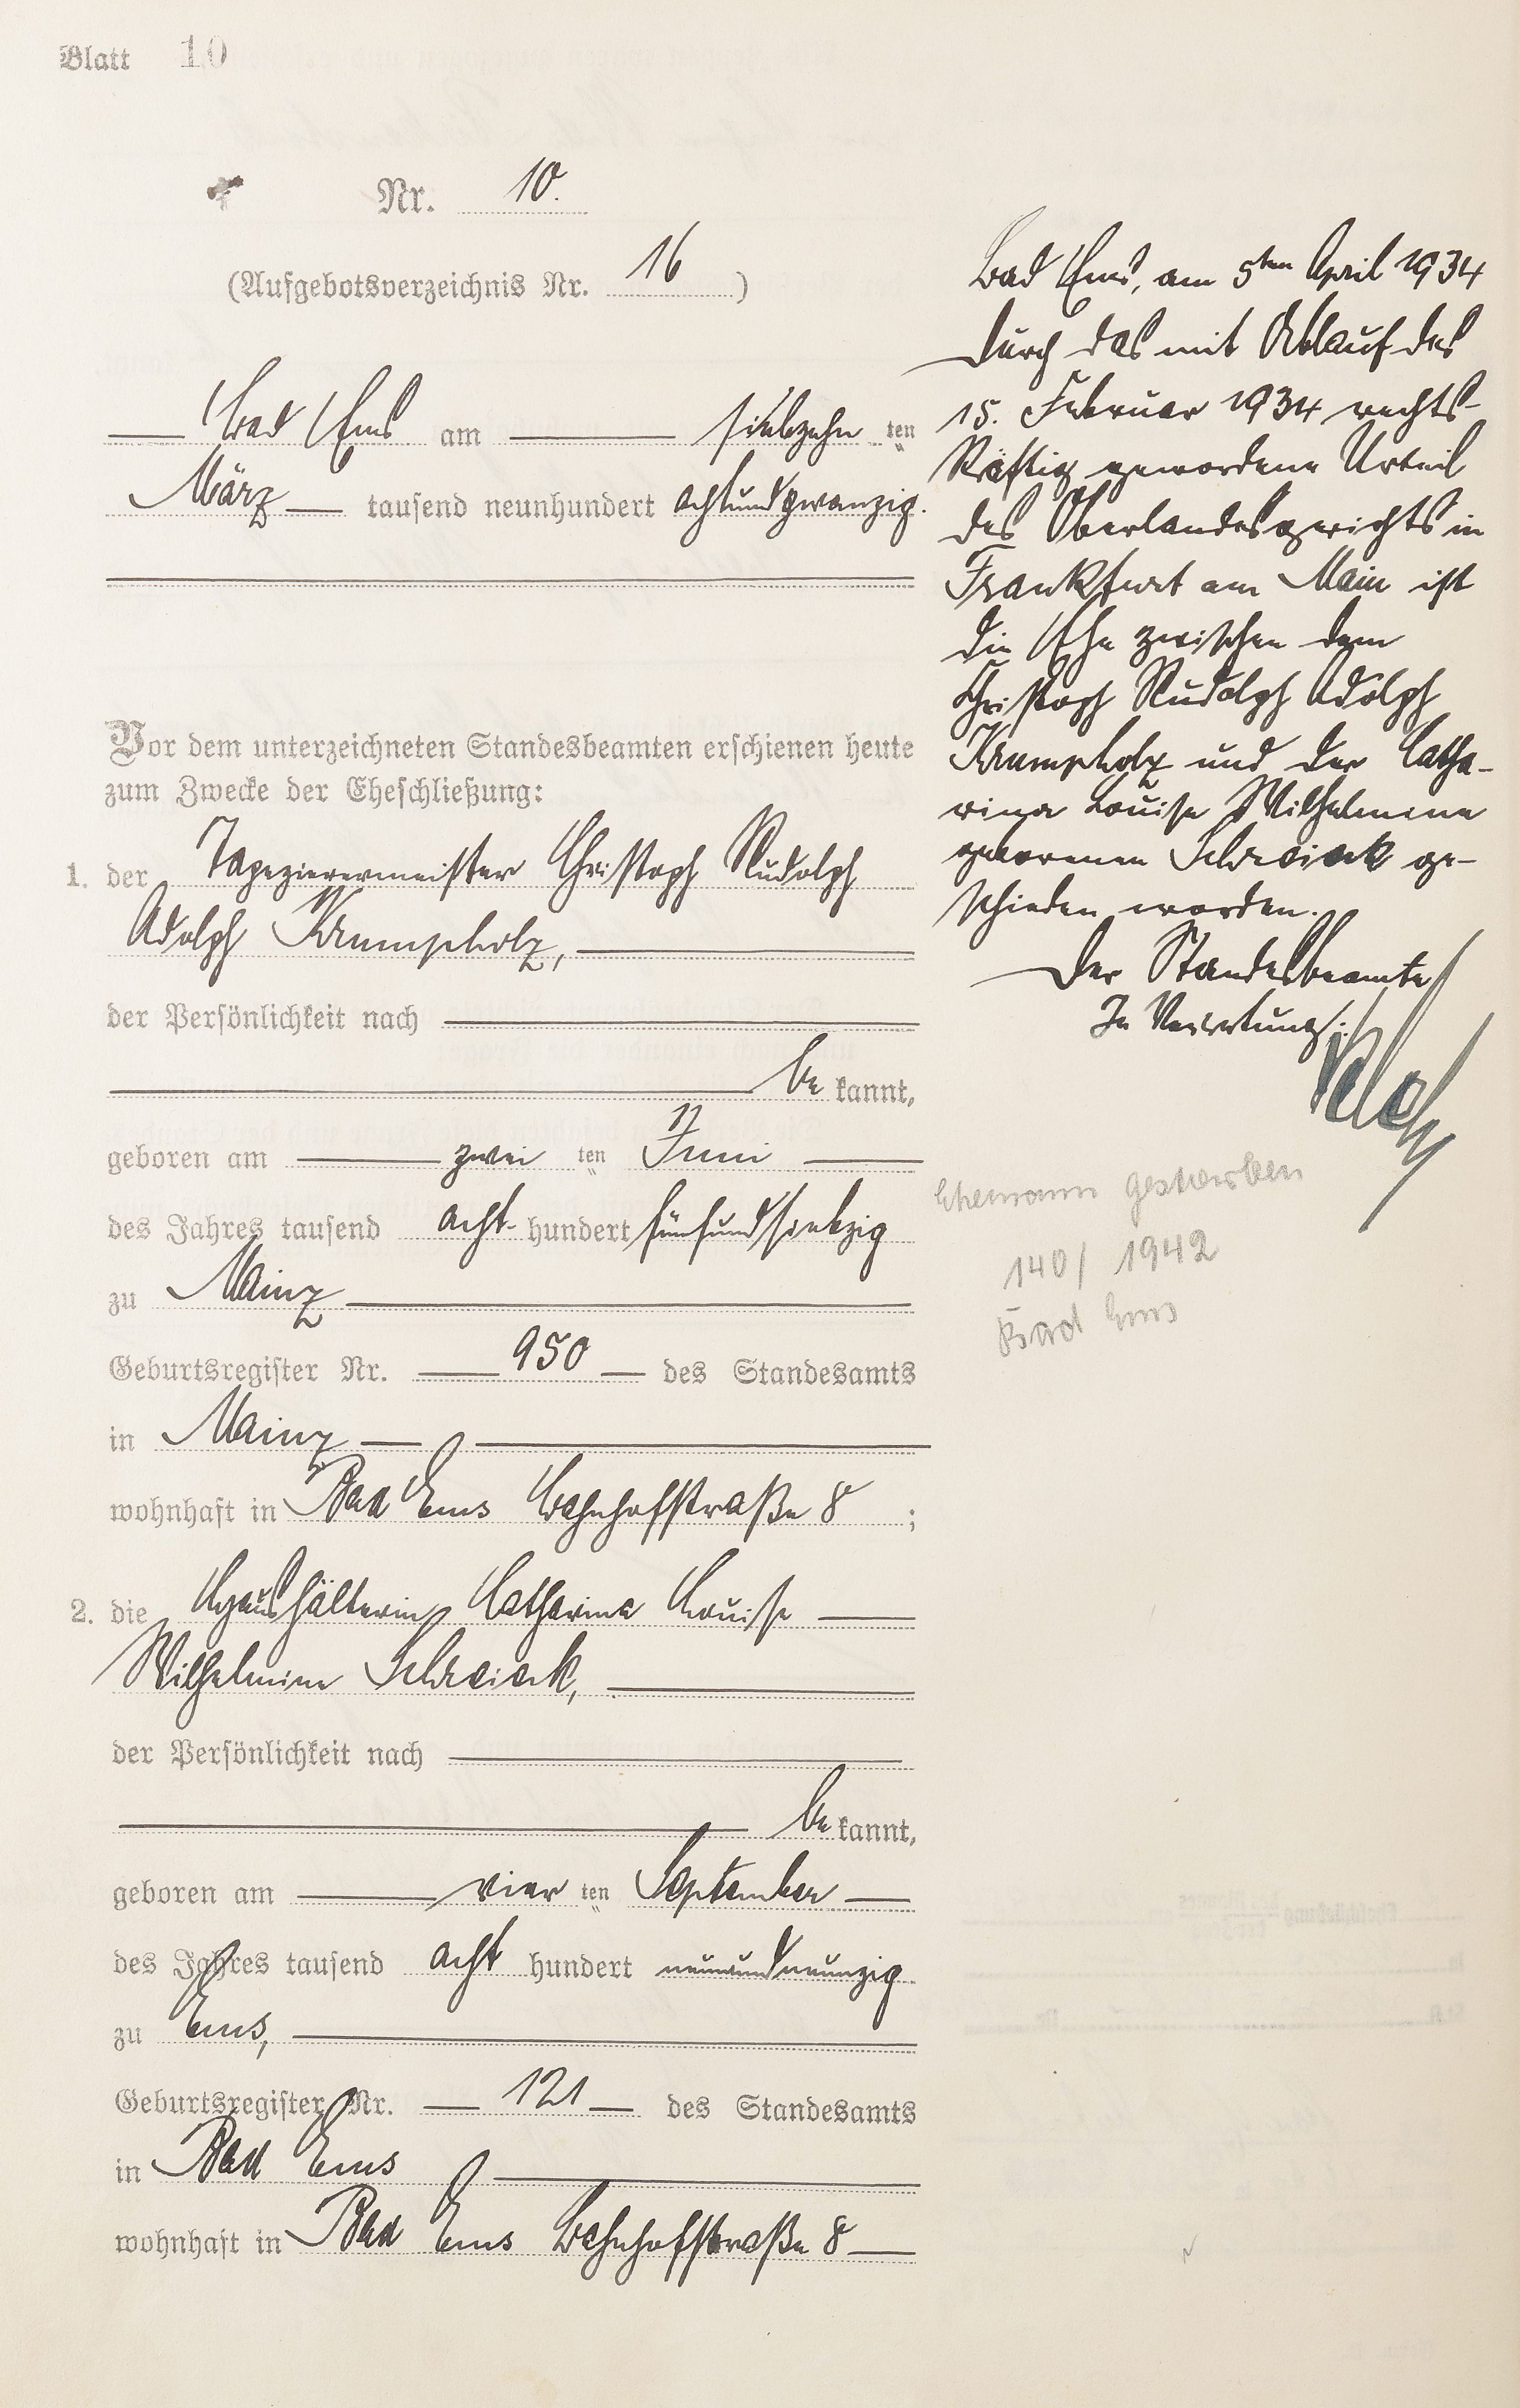 Blatt 10
Nr. 10.
(Aufgebotsverzeichnis Nr. 16)
Bad Ems am siebzehn ten
März tausend neunhundert achtundzwanzig.
Vor dem unterzeichneten Standesbeamten erschienen heute
zum Zwecke der Eheschließung:
1. der Tapezierermeister Christoph Rudolph
Adolph Krumpholz,
der Persönlichkeit nach
be kannt,
geboren am zwei ten Juni
des Jahres tausend acht hundert fünfundsiebzig
zu Mainz
Geburtsregister Nr. 950 des Standesamts
in Mainz
wohnhaft in Bad Ems Bahnhofstraße 8 ;
2. die Haushälterin Catharina Louise
Wilhelmine
der Persönlichkeit nach
be kannt,
geboren am vier ten September
des Jahres tausend acht hundert neunundneunzig
zu Ems,
Geburtsregister Nr. 121 des Standesamts
in Bad Ems
wohnhaft in Bad Ems Bahnhofstraße 8
Bad Ems, am 5ten April 1934
Durch das mit Ablauf des
15. Februar 1934 rechts-
kräftig gewordene Urteil
des Oberlandesgerichts in
Frankfurt am Main ist
die Ehe zwischen dem
Christoph Rudolph Adolph
Krumpholz und der Catha-
rina Louise Wilhelmine
geborenen ge-
schieden worden.
Der Standesbeamte
In Vertretung:
Ehemann gestorben
140/1942
Bad Ems